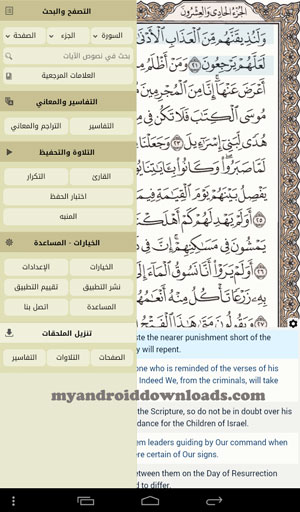 التصفح والبحث
السورة
الجزء
الصفحة
بحث في نصوص الآيات
العلامات المرجعية
التفاسير والمعاني
التفاسير
التراجم والمعاني
التلاوة والتحفيظ
القارئ
التكرار
اختبار الحفظ
المنبه
الخيارات - المساعدة
الخيارات
الإعدادات
نشر التطبيق
تقييم التطبيق
المساعدة
اتصل بنا
تنزيل الملحقات
الصفحات
التلاوات
التفاسير
الجزء الحادي والعشرون
وَلَنُذِيقَنَّهُم مِّنَ ٱلْعَذَابِ ٱلْأَدْنَىٰ
لَعَلَّهُمْ يَرْجِعُونَ ٢١ وَمَنْ أَظْلَمُ
أَعْرَضَ عَنْهَآ إِنَّا مِنَ ٱلْمُجْرِمِينَ
مُوسَى ٱلْكِتَٰبَ فَلَا تَكُن فِى
هُدًى لِّبَنِىٓ إِسْرَٰٓءِيلَ ٢٣ وَجَعَلْنَا
لَمَّا صَبَرُوا۟ وَكَانُوا۟ بِـَٔايَٰتِنَا
يَفْصِلُ بَيْنَهُمْ يَوْمَ ٱلْقِيَٰمَةِ فِيمَا
٢٥ أَوَلَمْ يَهْدِ لَهُمْ كَمْ أَهْلَكْنَا
يَمْشُونَ فِى مَسَٰكِنِهِمْ إِنَّ فِى
٢٦ أَوَلَمْ يَرَوْا۟ أَنَّا نَسُوقُ ٱلْمَآءَ إِلَى
بِهِۦ زَرْعًا تَأْكُلُ مِنْهُ أَنْعَٰمُهُمْ
٢٧ وَيَقُولُونَ مَتَىٰ هَٰذَا ٱلْفَتْحُ
the nearer punishment short of the
y will repent.
one who is reminded of the verses of his
Indeed We, from the criminals, will take
myandroiddownloads.com
the Scripture, so do not be in doubt over his
dance for the Children of Israel.
em leaders guiding by Our command when
ere certain of Our signs.
etween them on the Day of Resurrection
d to differ.